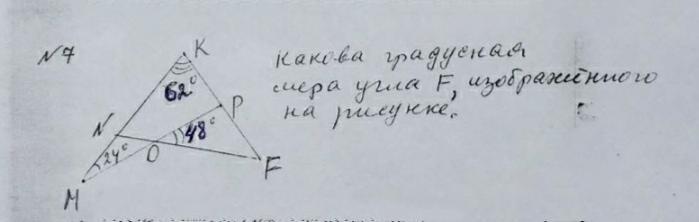 №7
Какова градусная
мера угла F, изображённого
на рисунке.
K
62°
P
N
48°
24°
O
F
M